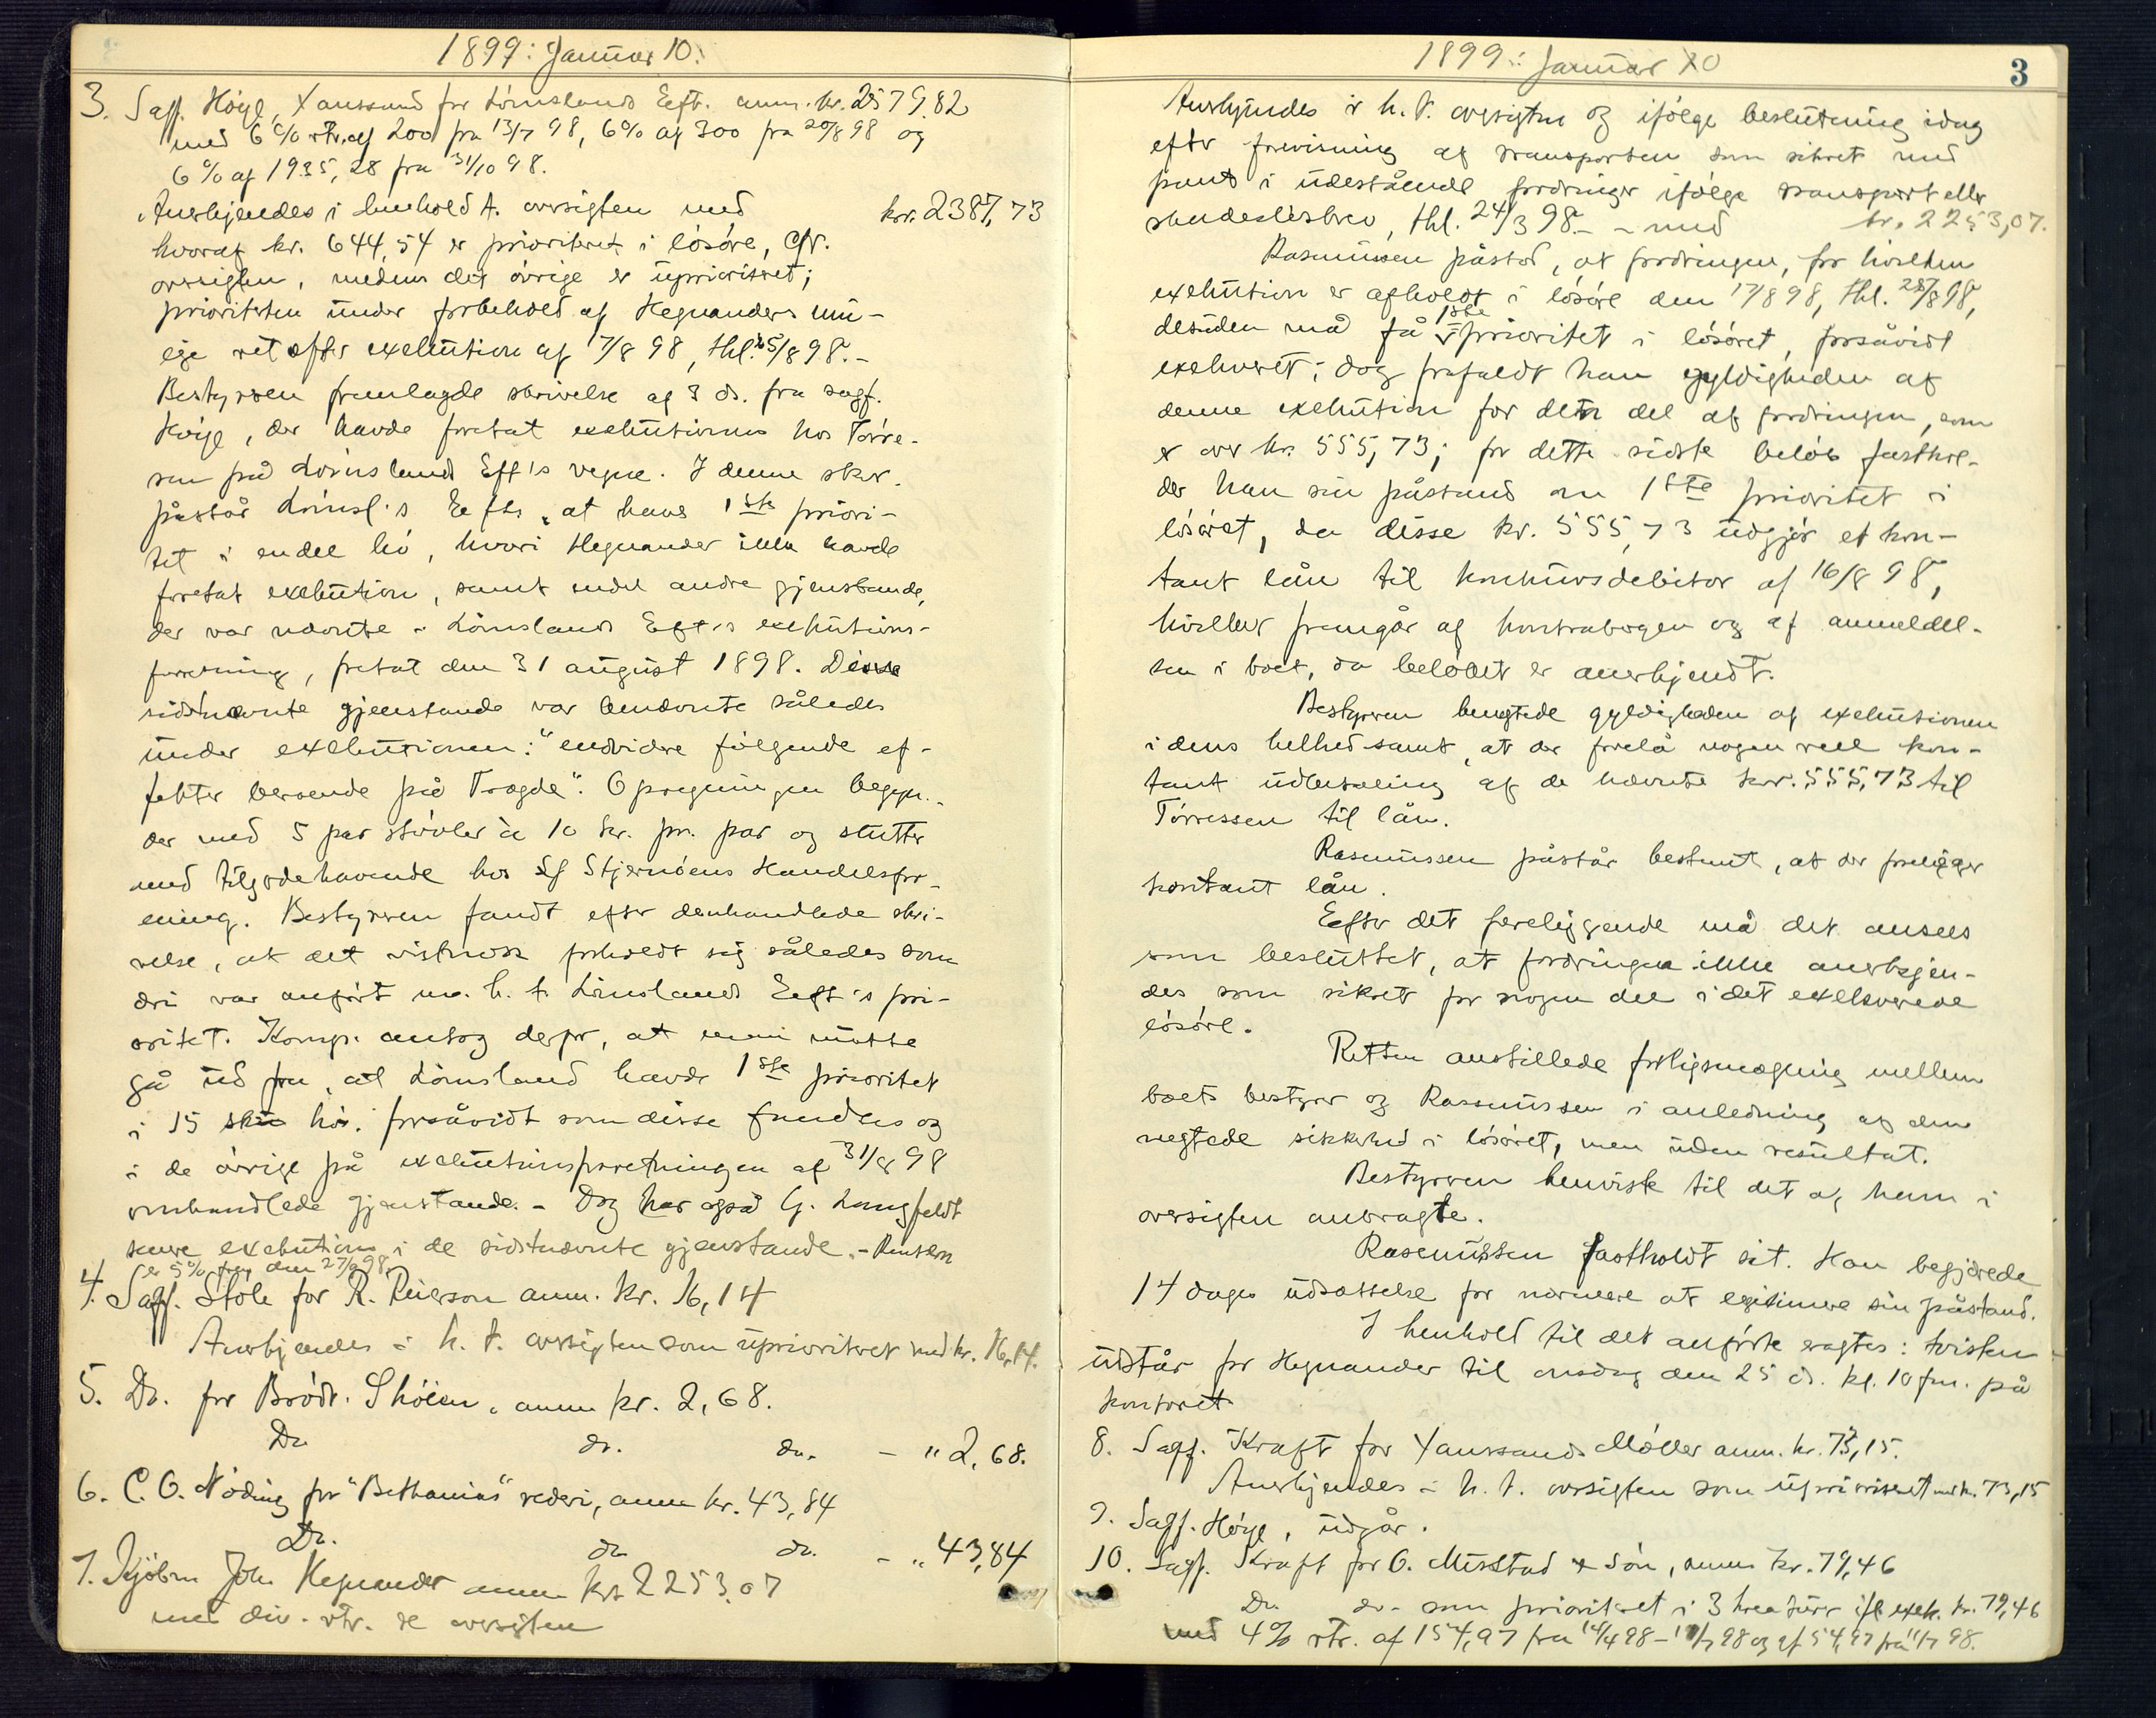 1899: Januar 10.
3. Sagf. Høyе, Xanssand for Lømslands Eeft. anm. kr. 2579.82
med 6% rtr. af 200 fra 13/7 98, 6% af 300 fra 20/8 98 og
6% af 1935,28 fra 31/10 98.
Anerkjendes i henhold t. oversigten med kr. 2387,73
hvoraf kr. 644,54 er prioriteret i løsøre, cfr.
oversigten, medens det øvrige er uprioritret;
prioriteten under forbehold af Hegnanders mu-
lige ret efter exekution af 17/8 98, thl. 25/8 98.-
Bestyreren fremlagde skrivelse af 3 ds. fra sagf.
Høye, der havde foretat exekutionen hos Tørre-
sen på Lømslands Eft's vegne. I denne skr.
påstår Lømsl.'s Eefts. at have 1ste priori-
tet i endel hø, hvori Hegnander ikke havde
foretat exekution, samt endel andre gjenstande,
der var nævnte i Lømslands Eeft's exekutions-
forretning, fretat den 31 august 1898. Disse
sidstnævnte gjenstande var benævnte således
under exekutionen: "endvidere følgende ef-
fekter beroende på Trægde". Opregningen begyn-
der med 5 par støvler à 10 kr. pr. par og slutter
med tilgodehavende hos Stjernøens Handelsfor-
ening. Bestyreren fandt efter denhandlede skri-
velse, at det vistnok forholdt sig således som
deri var anført m. h. t. Lømslands Eeft's pri-
oritet. Komp. antog derfor, at man måtte
gå ud fra, at Lømsland havde 1ste prioritet
i 15 hø. forsåvidt som disse fandtes og
i de øvrige på exekutionsforretningen af 31/8 98
omhandlede gjenstande.- Dog har også G. Langfeldt
senere exekution i de sidstnævnte gjenstande.- Renten
er 5% fra den 27/9 98.
4. Sagf. Stole for R. Reierson anm. kr. 16,14
Anerkjendes i h. t. oversigten som uprioriteret med kr. 16,14.
5. Do. for Brødr. Skøien, anm kr. 2,68.
Do do. do. - " 2,68.
6. C. O. Nøding for "Bethanias" rederi, anm kr. 43,84
Do. do do. - " 43,84
7. Kjøbm John Hegnander anm kr. 2253.07
med div. rtr. se oversigten
1899: Januar 10
3
Anerkjendes i h. t. oversigten og ifølge beslutning idag
efter forevisning af transporten som sikret med
pant i udestående fordringer ifølge transport eller
skadesløsbrev, thl. 24/3 98.- - med kr. 2253,07.
Rasmussen påstod, at fordringen, for hvilken
exekution er afholdt i løsøre den 17/8 98, thl. 25/8 98,
desuden må få 1ste prioritet i løsøret, forsåvidt
exekveret; dog frafaldt han gyldigheden af
denne exekution for den del af fordringen, som
er over kr. 555,73; for dette sidste beløb fasthol-
der han sin påstand om 1ste prioritet i
løsøret, da disse kr. 555,73 udgjør et kon-
tant lån til konkursdebitor af 16/8 98,
hvilket fremgår af kontrabogen og af anmeldel-
sen i boet, da beløbet er anerkjendt.
Bestyreren benegtede gyldigheden af exekutionen
i dens helhed samt, at der forelå nogen reel kon-
tant udbetaling af de nævnte kr. 555,73 til
Tørressen til lån.
Rasmussen påstår bestemt, at der foreligger
kontant lån.
Efter det foreliggende må det ansees
som besluttet, at fordringen ikke anerkjen-
des som sikret for nogen del i det exekverede
løsøre.
Retten anstillede forligsmægling mellem
boets bestyrer og Rasmussen i anledning af den
negtede sikkerhed i løsøret, men uden resultat.
Bestyreren henviste til det af ham i
oversigten anbragte.
Rasmussen fastholdt sit. Han begjærede
14 dages udsættelse for nærmere at legitimere sin påstand.
I henhold til det anførte eragtes: tvisten
udstår for Hegnander til onsdag den 25 ds. kl. 10 fm. på
kontoret.
8. Sagf. Kraft for Xanssands Møller anm. kr. 73,15.
Anerkjendes i h. t. oversigten som uprioriteret med kr. 73,15
9. Sagf. Høye, udgår.
10. Sagf. Kraft for O. Mustad & Søn, anm kr. 79,46
Do. do- som prioriteret i 3 kreaturer ifl. exek. kr. 79,46
med 4% rtr. af 154,97 fra 14/4 98 - 11/7 98 og af 54,97 fra 11/7 98.